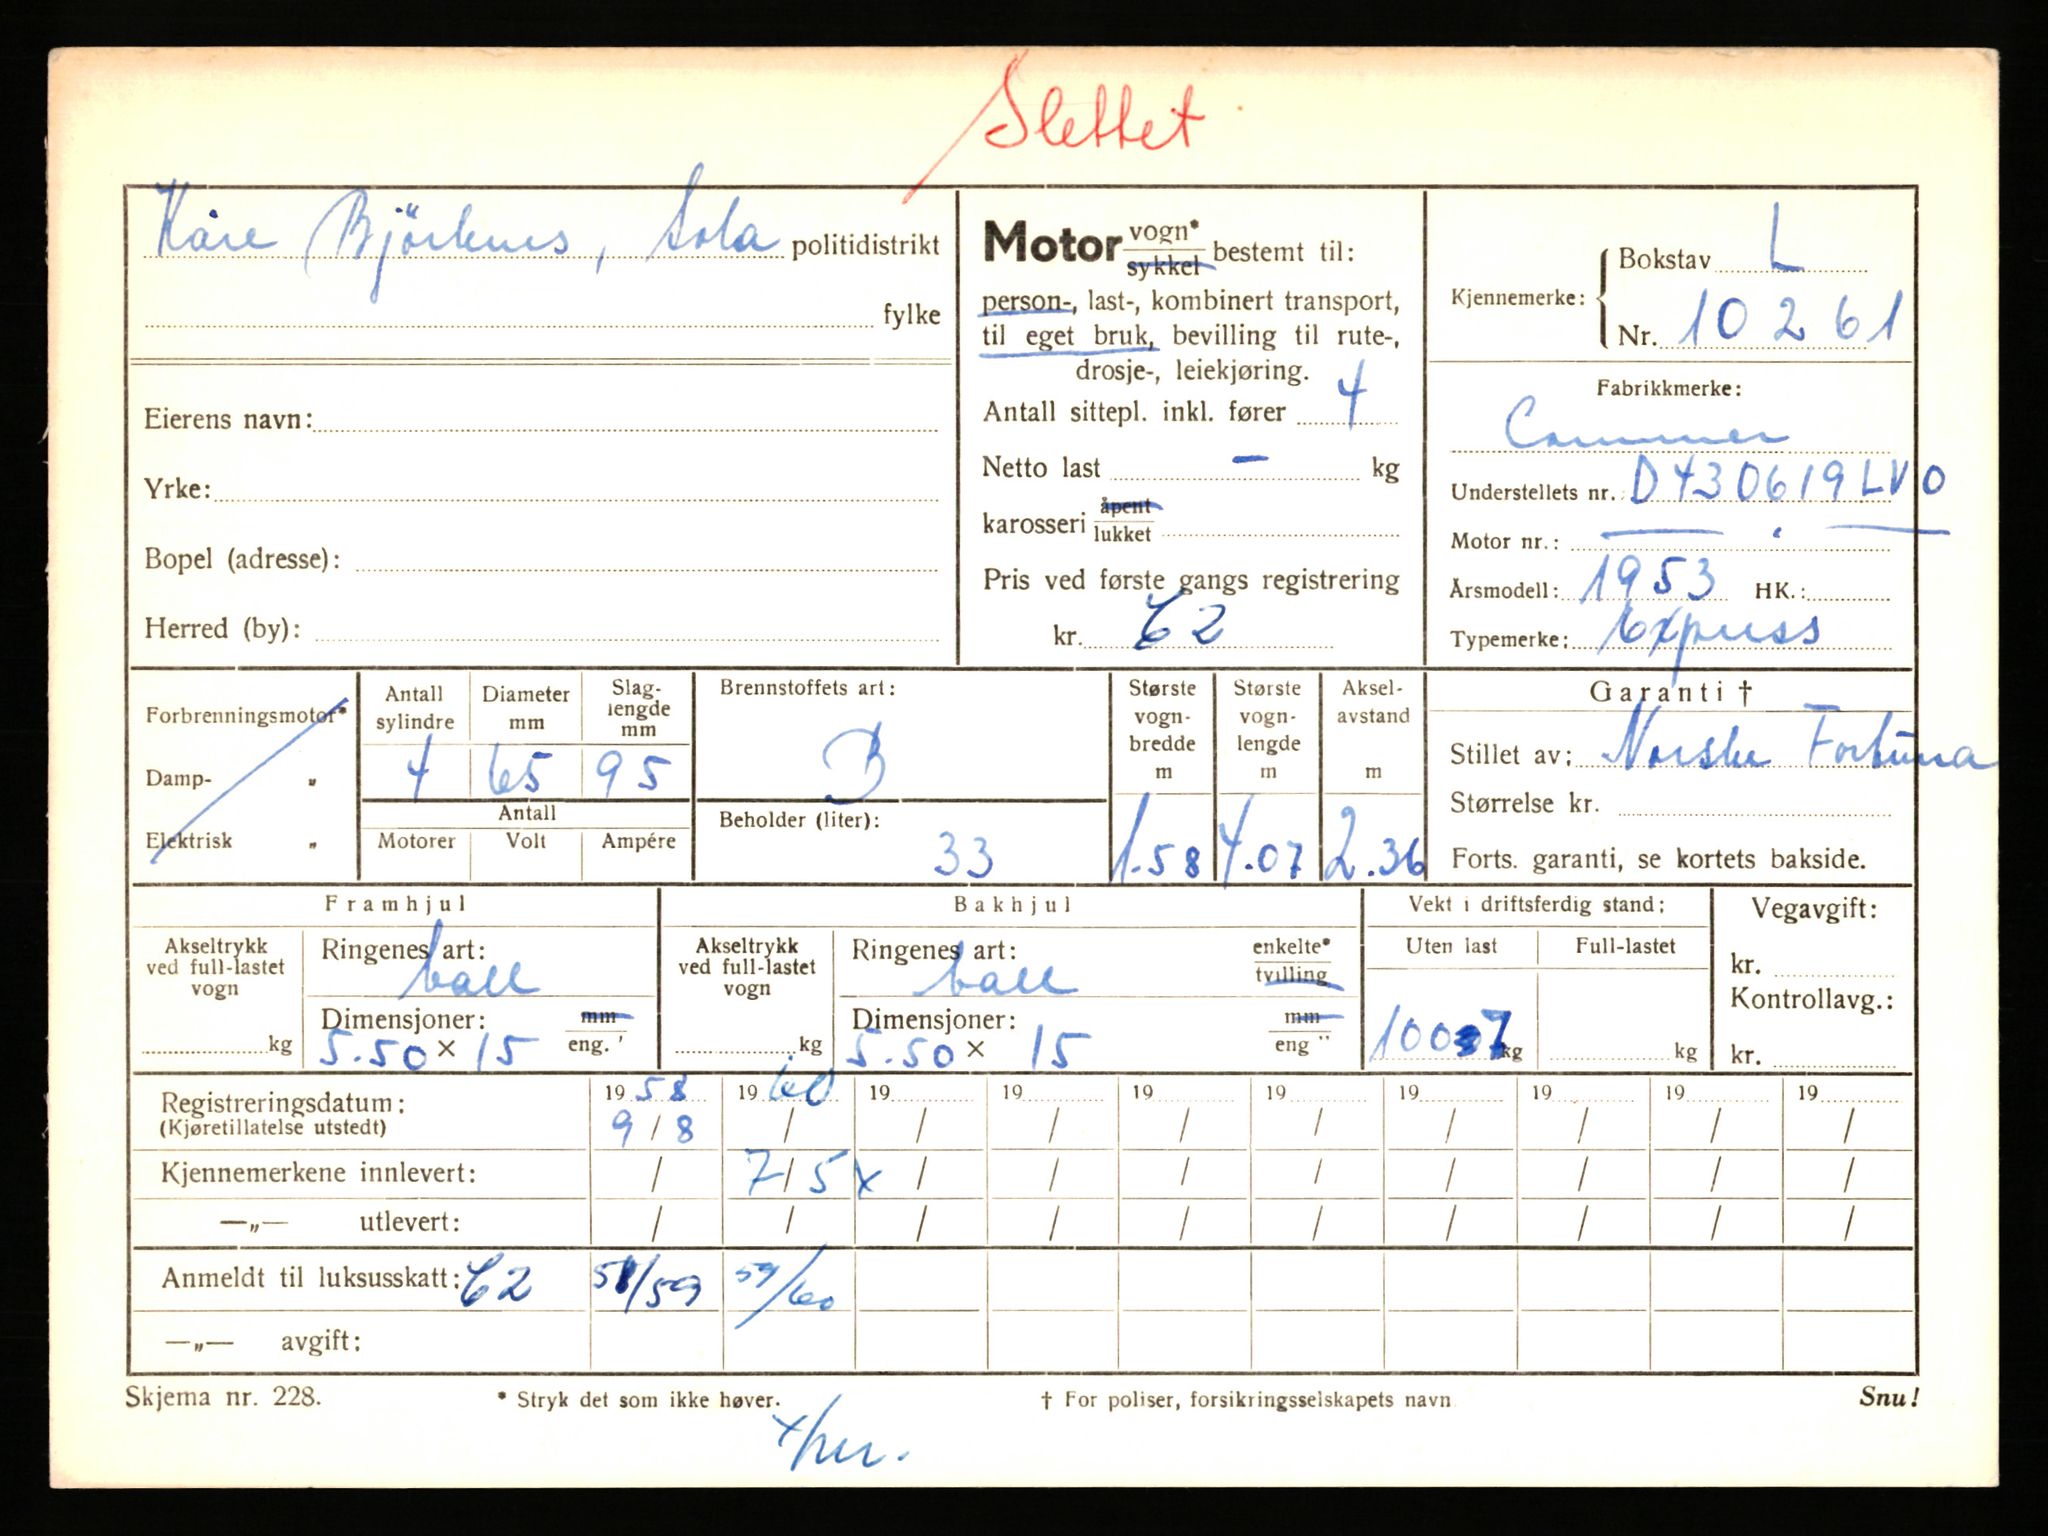 Slettet
Kåre Björknes, Sola politidistrikt
fylke
Eierens navn:
Yrke:
Bopel (adresse):
Herred (by):
Motor vogn* sykkel bestemt til:
person-, last-, kombinert transport,
til eget bruk, bevilling til rute-,
drosje-, leiekjøring.
Antall sittepl. inkl. fører 4
Netto last - kg
karosseri åpent lukket
Pris ved første gangs registrering
kr. C2
Kjennemerke: Bokstav L
Nr. 10261
Fabrikkmerke:
Commer
Understellets nr. D430619LVO
Motor nr.:
Årsmodell: 1953 HK.:
Typemerke: Express
Forbrenningsmotor*
Damp- „
Elektrisk „
Antall sylindre Diameter mm Slag- lengde mm
4 65 95
Antall
Motorer Volt Ampére
Brennstoffets art:
B
Beholder (liter):
33
Største vogn- bredde m 1.58
Største vogn- lengde m 4.07
Aksel- avstand m 2.36
Garanti †
Stillet av: Norske Fortuna
Størrelse kr.
Forts. garanti, se kortets bakside.
Framhjul
Akseltrykk ved full-lastet vogn
kg
Ringenes art:
ball
Dimensjoner: mm
5.50 × 15 eng. '
Bakhjul
Akseltrykk ved full-lastet vogn
kg
Ringenes art: enkelte* tvilling
ball
Dimensjoner: mm
5.50 × 15 eng "
Vekt i driftsferdig stand:
Uten last Full-lastet
1007 kg kg
Vegavgift:
kr.
Kontrollavg.:
kr.
Registreringsdatum: 1958 1960 19 19 19 19 19 19 19 19
(Kjøretillatelse utstedt) 9/8 / / / / / / / / /
Kjennemerkene innlevert: / 7/5 x / / / / / / / /
—„— utlevert: / / / / / / / / / /
Anmeldt til luksusskatt: C2 58/59 59/60
—„— avgift:
Skjema nr. 228. * Stryk det som ikke høver. † For poliser, forsikringsselskapets navn Snu!